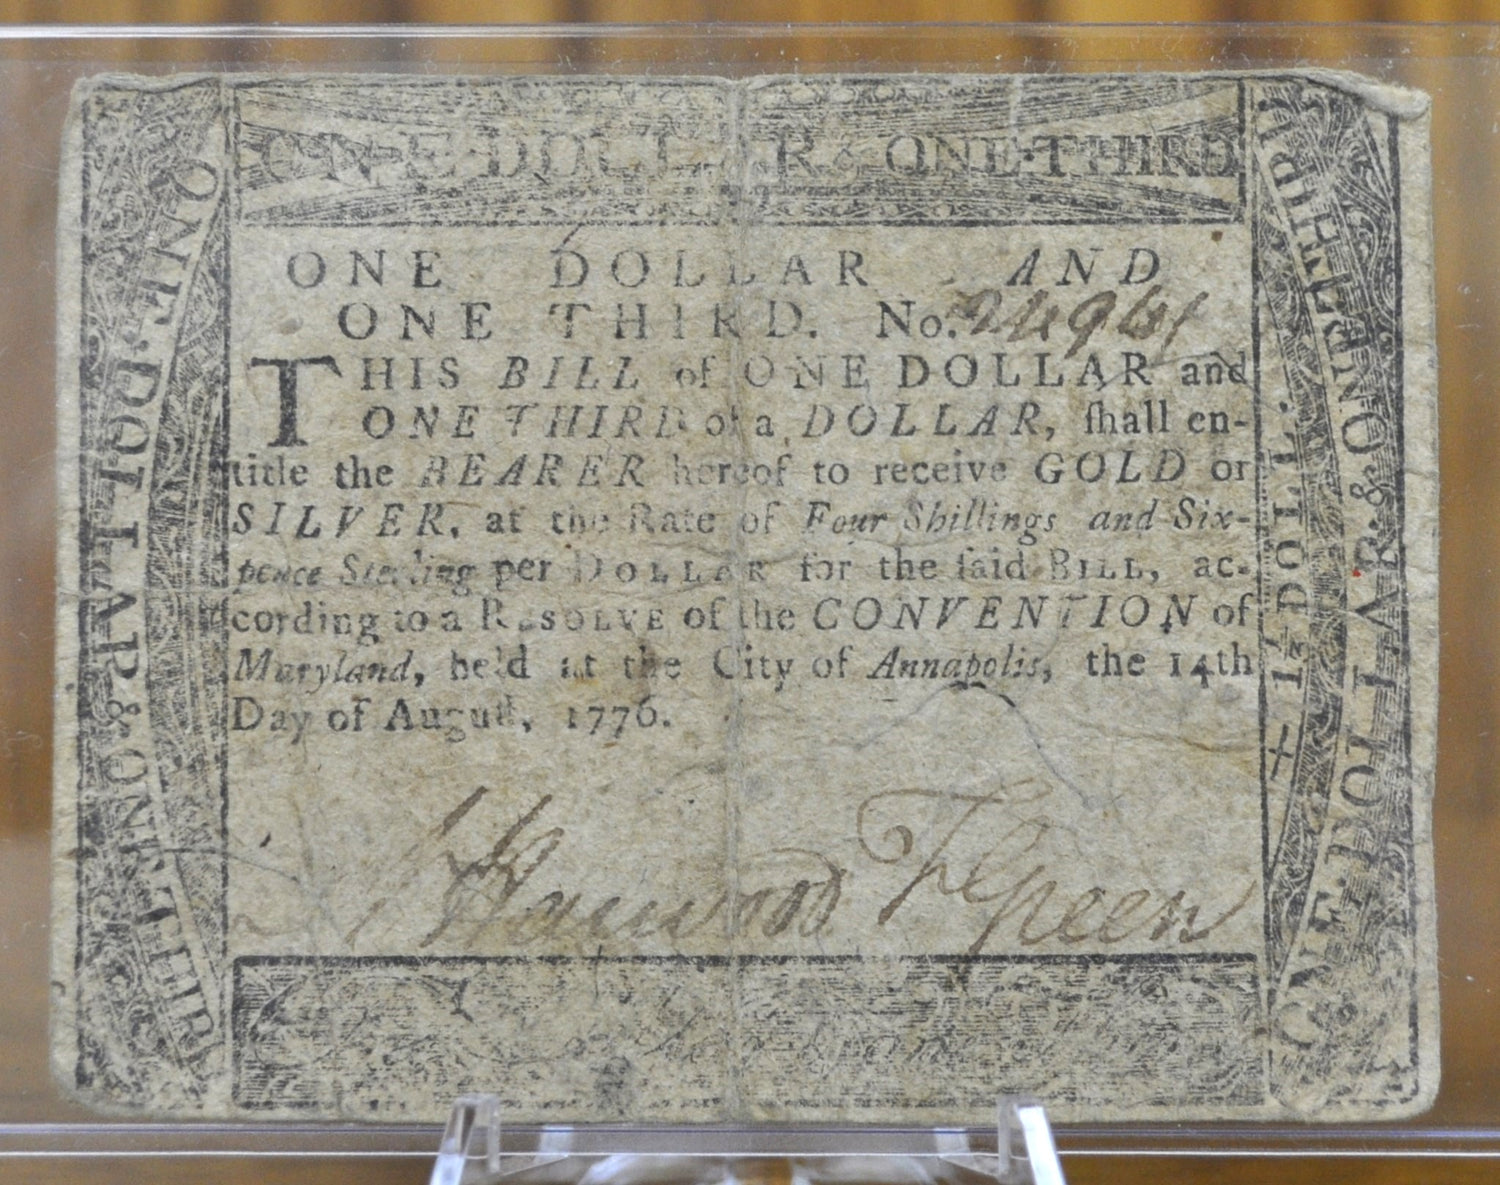 ONE·DOLLAR & ONE·THIRD
ONE DOLLAR AND
ONE THIRD. No.
THIS BILL of ONE DOLLAR and
ONE THIRD of a DOLLAR, ſhall en-
title the BEARER hereof to receive GOLD or
SILVER, at the Rate of Four Shillings and Six-
pence Sterling per DOLLAR for the ſaid BILL, ac-
cording to a RESOLVE of the CONVENTION of
Maryland, held at the City of Annapolis, the 14th
Day of Auguſt, 1776.
Harwood F Green
ONE·DOLLAR·&·ONE·THIRD
1⅓ DOLL.
ONE·DOLLAR·&·ONE·THIRD